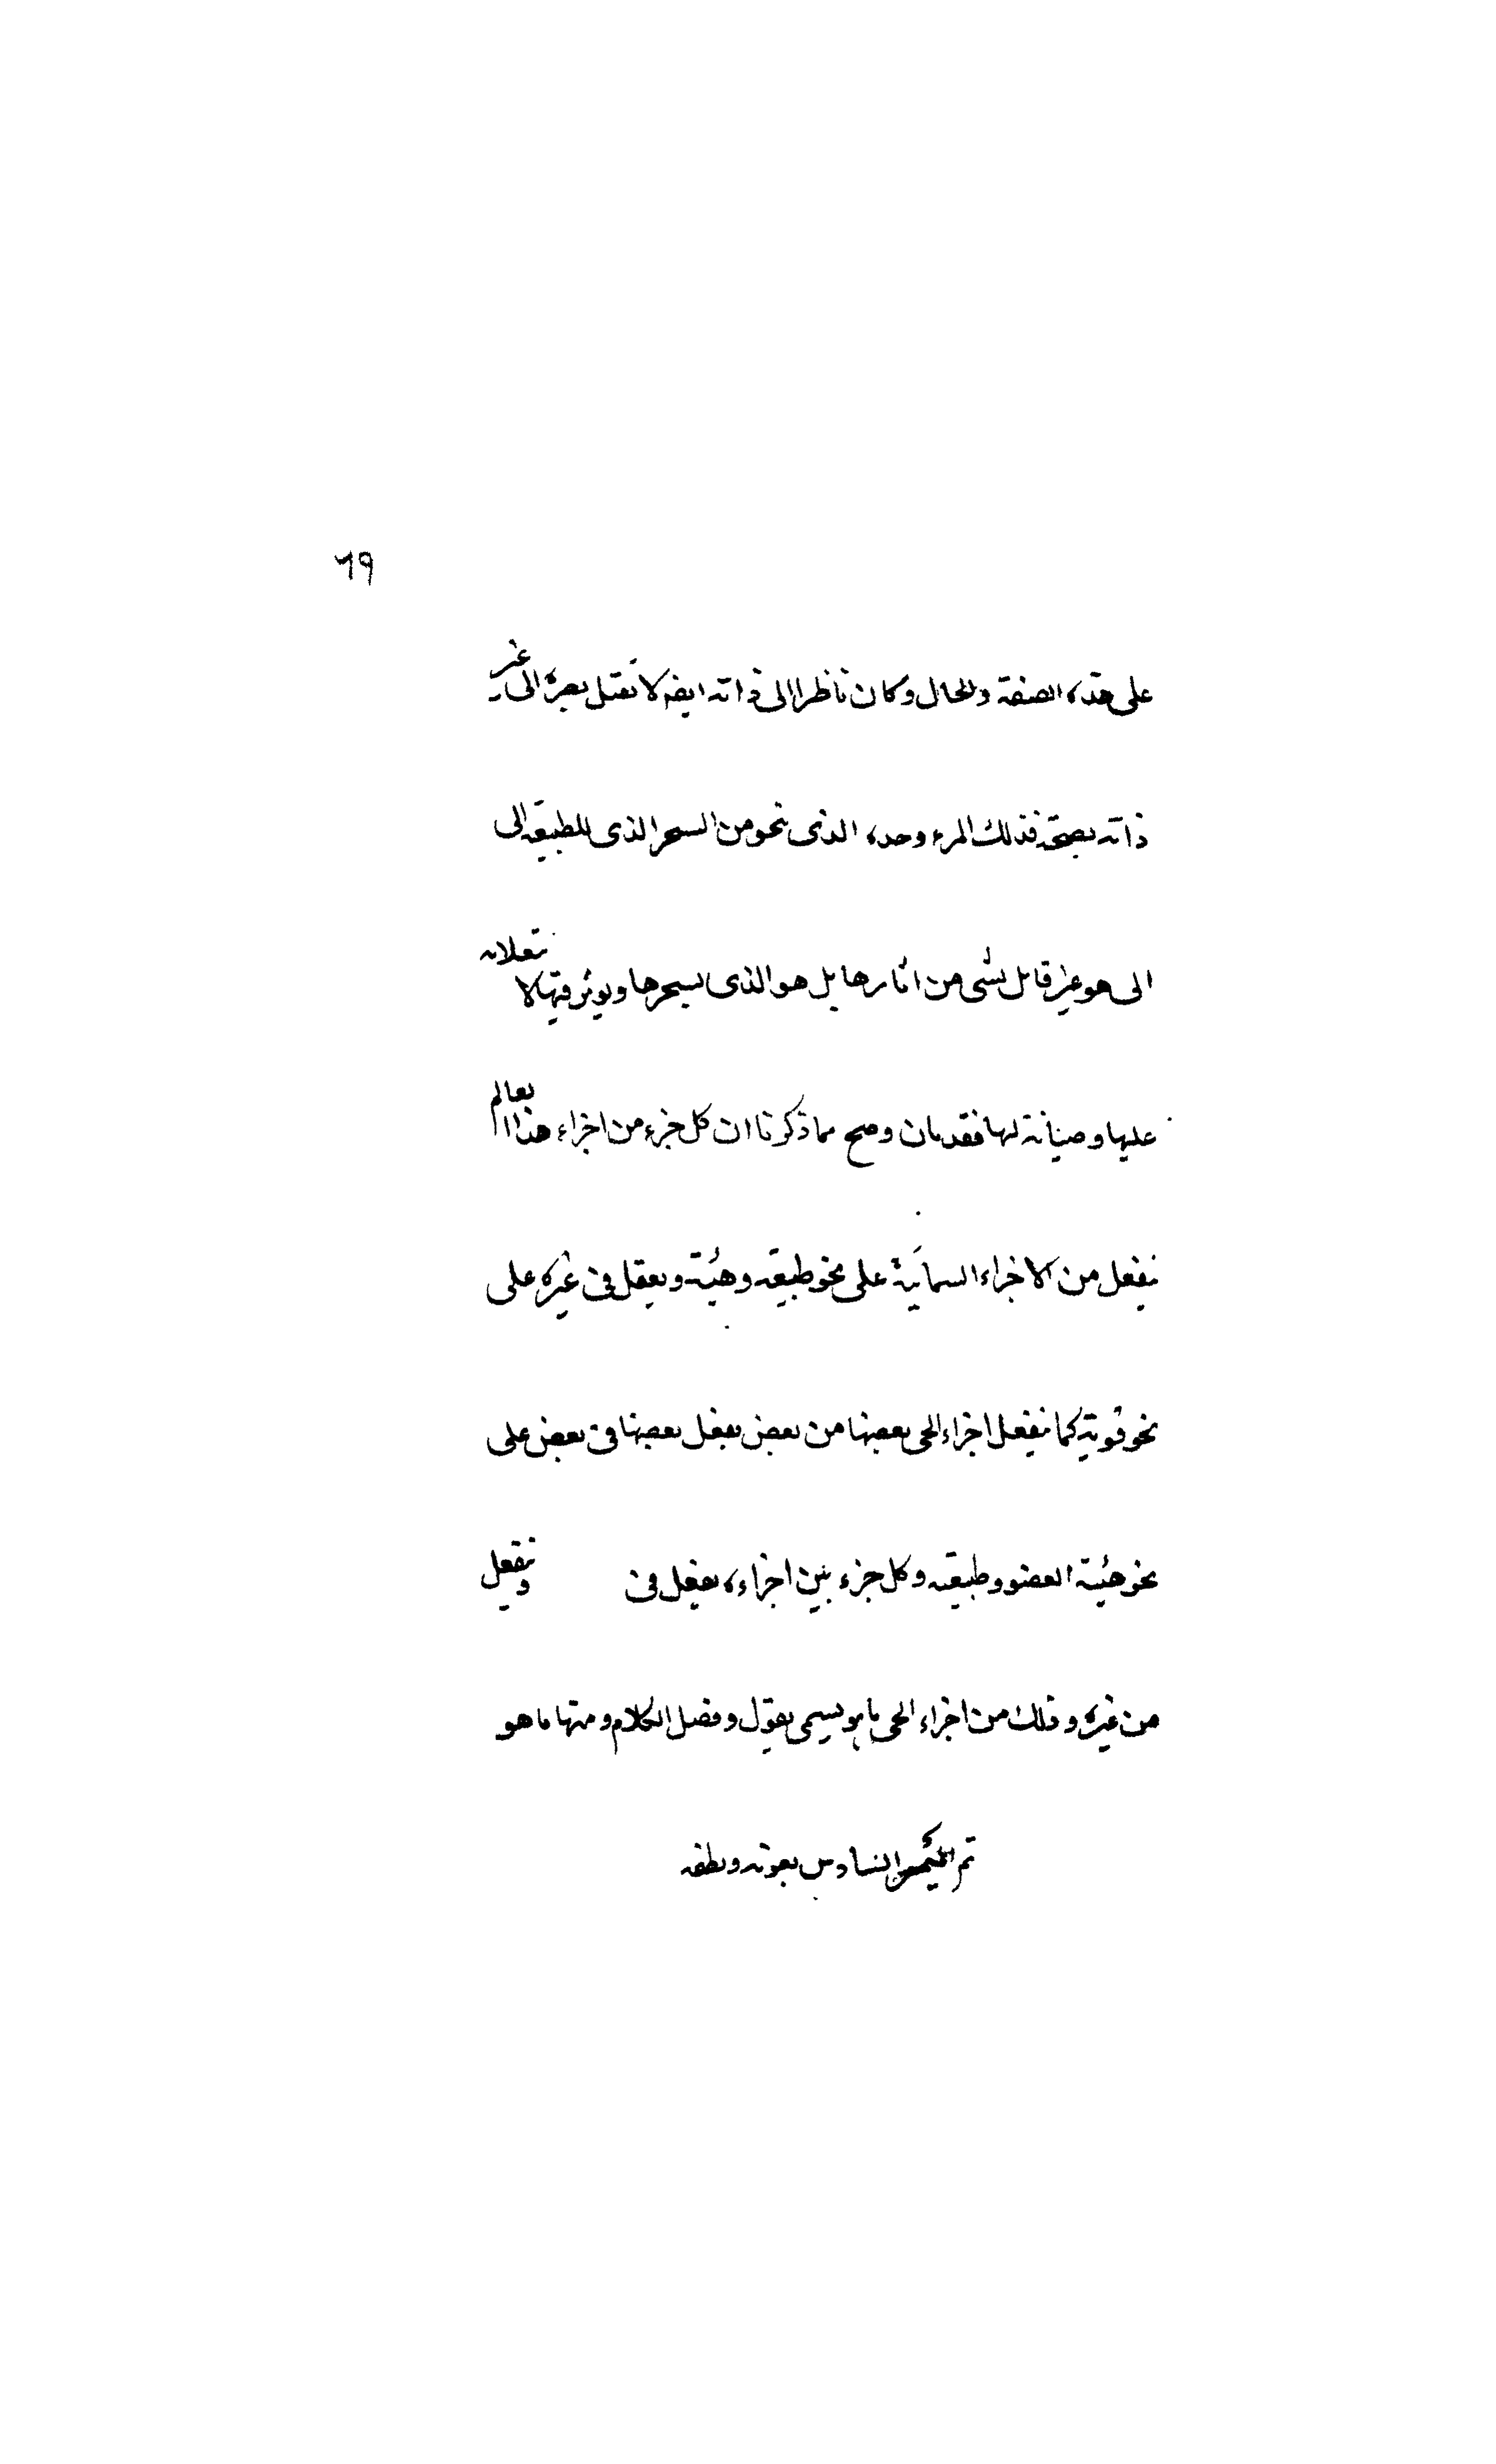 ٦٩
على هذه الصفة والحال وكان ناظرا الى ذاته ايضه لا تقبل بصره الى غير
ذاته بصحته فذلك المرء وحده الذى نحو من السحر الذى للطبيعه الى
الى هو غير قابل لشى من اثارها بل هو الذى يسحرها ويوثر فيها لا
عليها وصيانة لها فقد بان وصح مما ذكرنا ان كل جزء من اجزاء هذا العالم
ينفعل من الاجزاء السمائية على نحو طبيعته وهيئته ويفعل فى غيره على
نحو قوته كما ينفعل اجزاء الحى بعضها من بعض يفعل بعضها فى بعض على
نحو هيئة العضو وطبيعته وكل جزء بين اجزاءه يفعل فى وينفعل
من غيره وذلك من اجزاء الحى يسمى بقول وفصل الكلام ومنها ما هو
تم الميمر السادس بعونه ولطفه